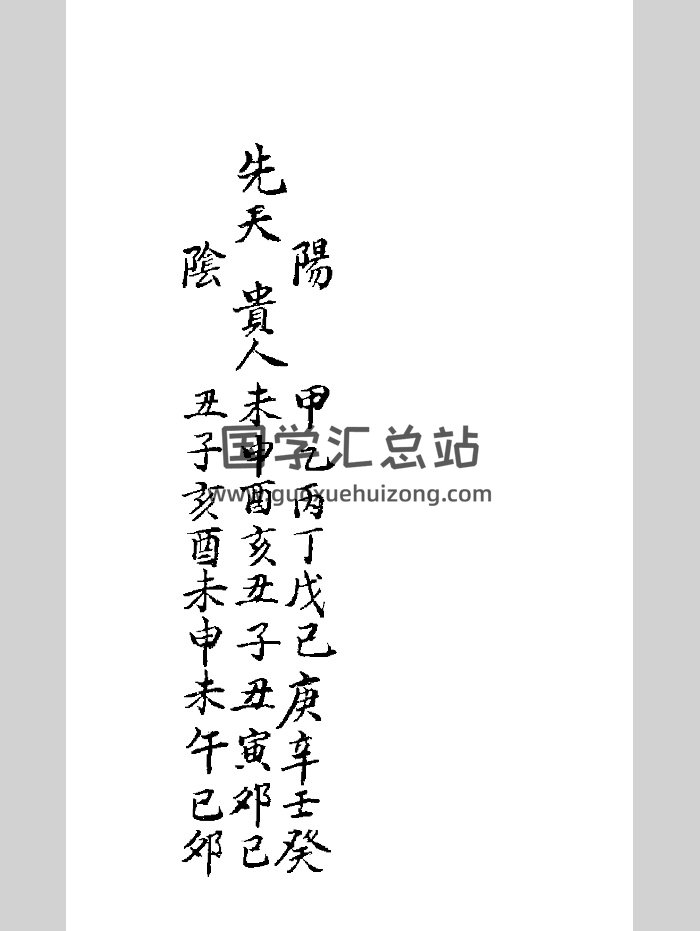 陽
先天貴人
陰
甲乙丙丁戊己庚辛壬癸
未申酉亥丑子丑寅卯巳
丑子亥酉未申未午巳卯
国学汇总站
www.guoxuehuizong.com